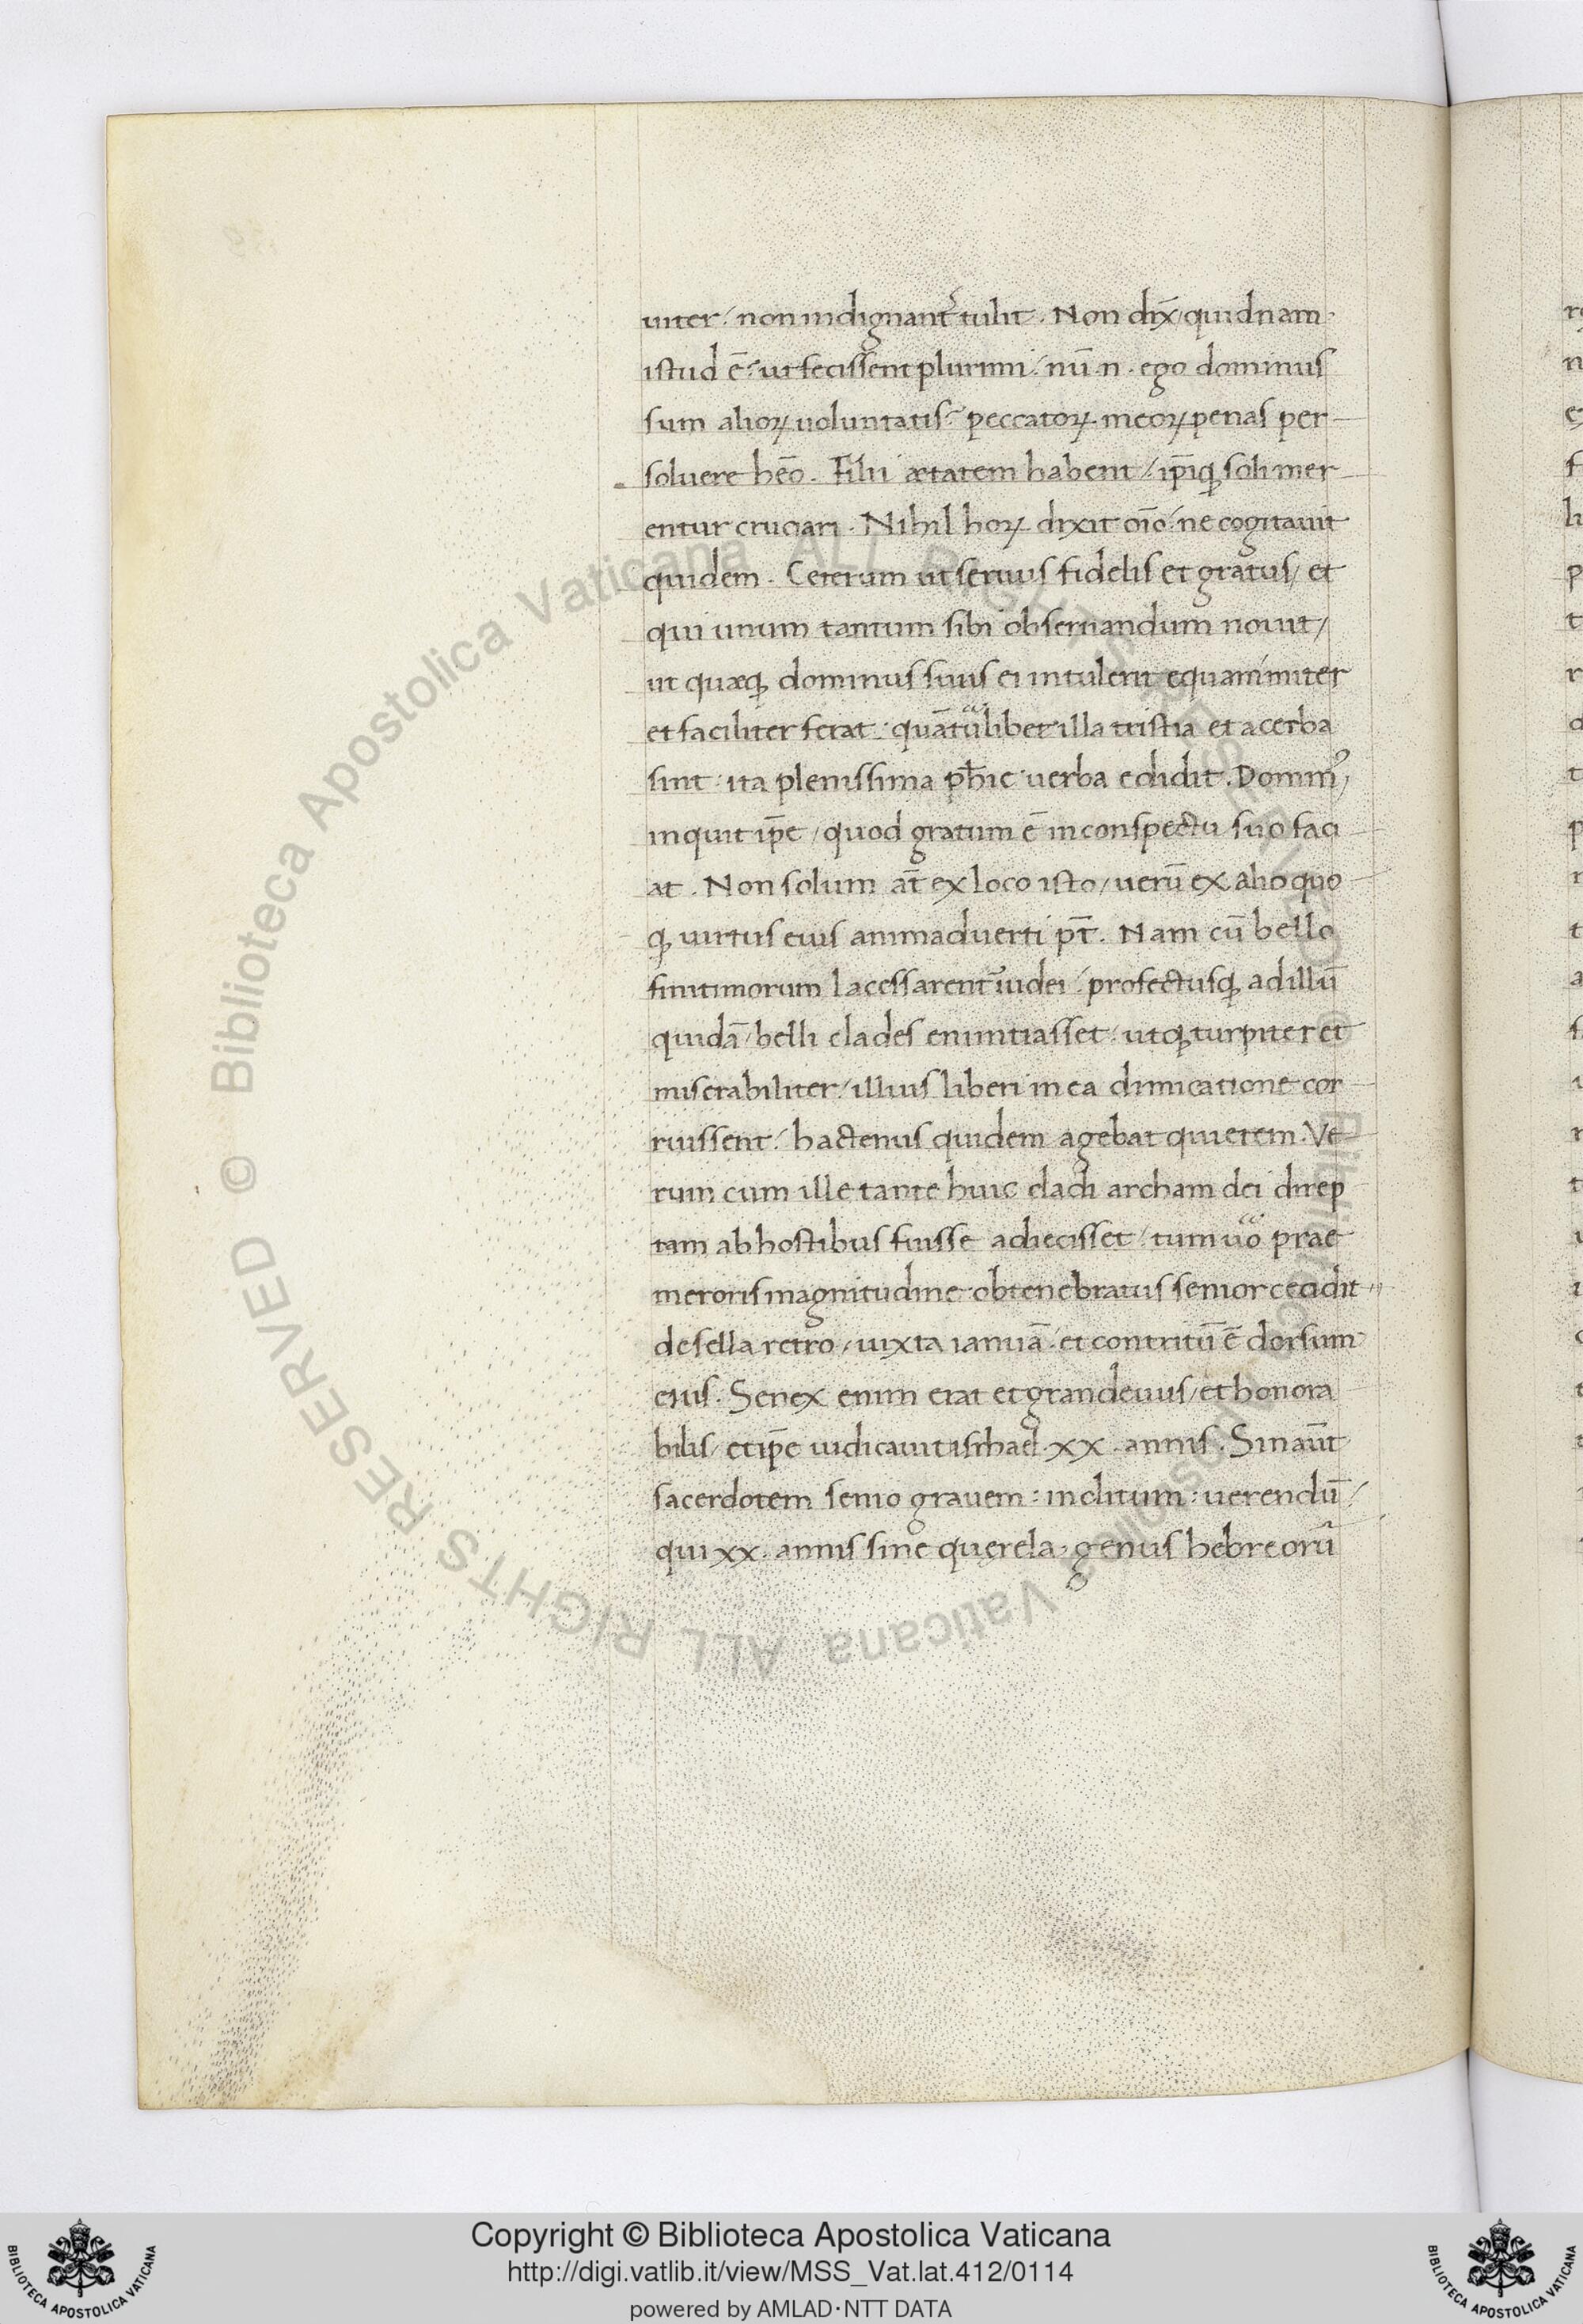 uiter / non indignant᷑ tulit . Non dix̄ / quidnam
istud ē ? ut fecissent plurimi / nū . n . ego dominus
sum alioꝝ uoluntatis ? peccatoꝝ meoꝝ penas per
soluere hēo . Filii ætatem habent / ip̄iqꝫ soli mer
entur cruciari . Nihil hoꝝ dixit oīo / ne cogitauit
quidem . Ceterum ut seruus fidelis et gratus / et
qui unum tantum sibi obseruandum nouit /
ut quæqꝫ dominus suus ei intulerit equanimiter
et faciliter ferat : quātūlibet illa tristia et acerba
sint : ita plenissima ph̄ie uerba edidit . Dominꝰ /
inquit ip̄e / quod gratum ē in conspectu suo faci
at . Non solum at̄ ex loco isto / uerū ex alio quo
qꝫ uirtus eius animaduerti pt̄ . Nam cū bello
finitimorum lacessarent᷑ iudei / profectusqꝫ ad illū
quidā / belli clades enuntiasset / utqꝫ turpiter et
miserabiliter / illius liberi in ea dimicatione cor
ruissent / hactenus quidem agebat quietem . Ve
rum cum ille tante huic cladi archam dei direp
tam ab hostibus fuisse adiecisset / tum uͣo prae
meroris magnitudine obtenebratus senior cecidit
de sella retro / iuxta ianuā / et contritū ē dorsum
eius . Senex enim erat et grandeuus / et honora
bilis / et ip̄e iudicauit isrhael . xx . annis . Sin aūt
sacerdotem senio grauem : inclitum : uerendū /
qui xx . annis sine querela / genus hebreorū
Copyright © Biblioteca Apostolica Vaticana
http://digi.vatlib.it/view/MSS_Vat.lat.412/0114
powered by AMLAD·NTT DATA
BIBLIOTECA APOSTOLICA VATICANA
BIBLIOTECA APOSTOLICA VATICANA
© Biblioteca Apostolica Vaticana ALL RIGHTS RESERVED
© Biblioteca Apostolica Vaticana ALL RIGHTS RESERVED